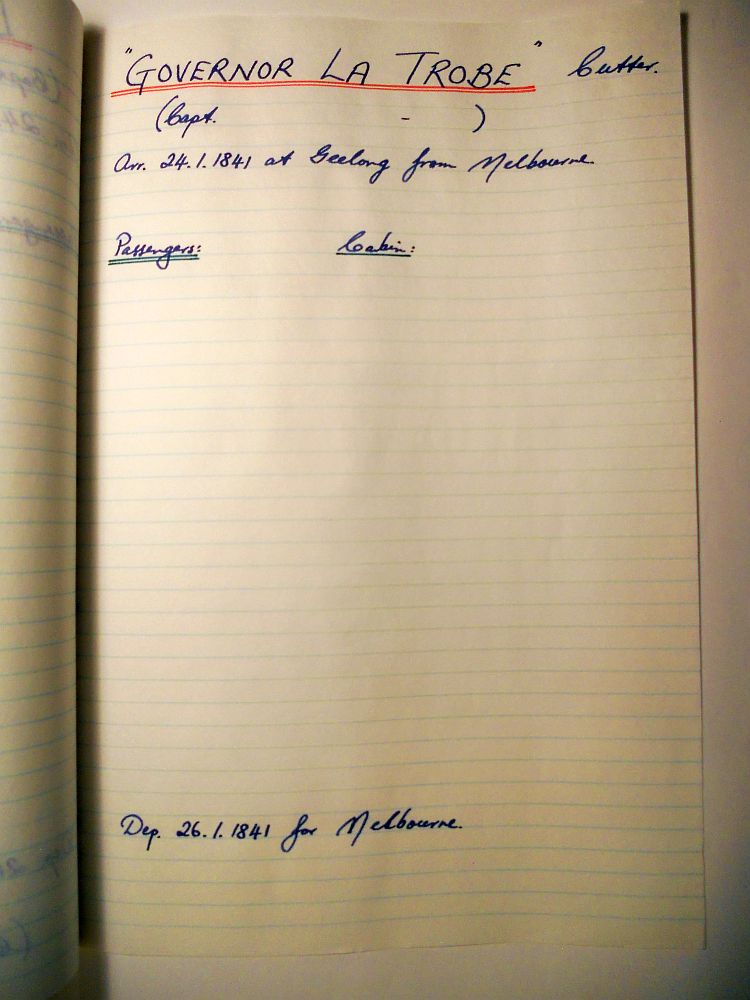 "GOVERNOR LA TROBE" Cutter.
(Capt. - )
Arr. 24.1.1841 at Geelong from Melbourne
Passengers: Cabin:
Dep. 26.1.1841 for Melbourne.